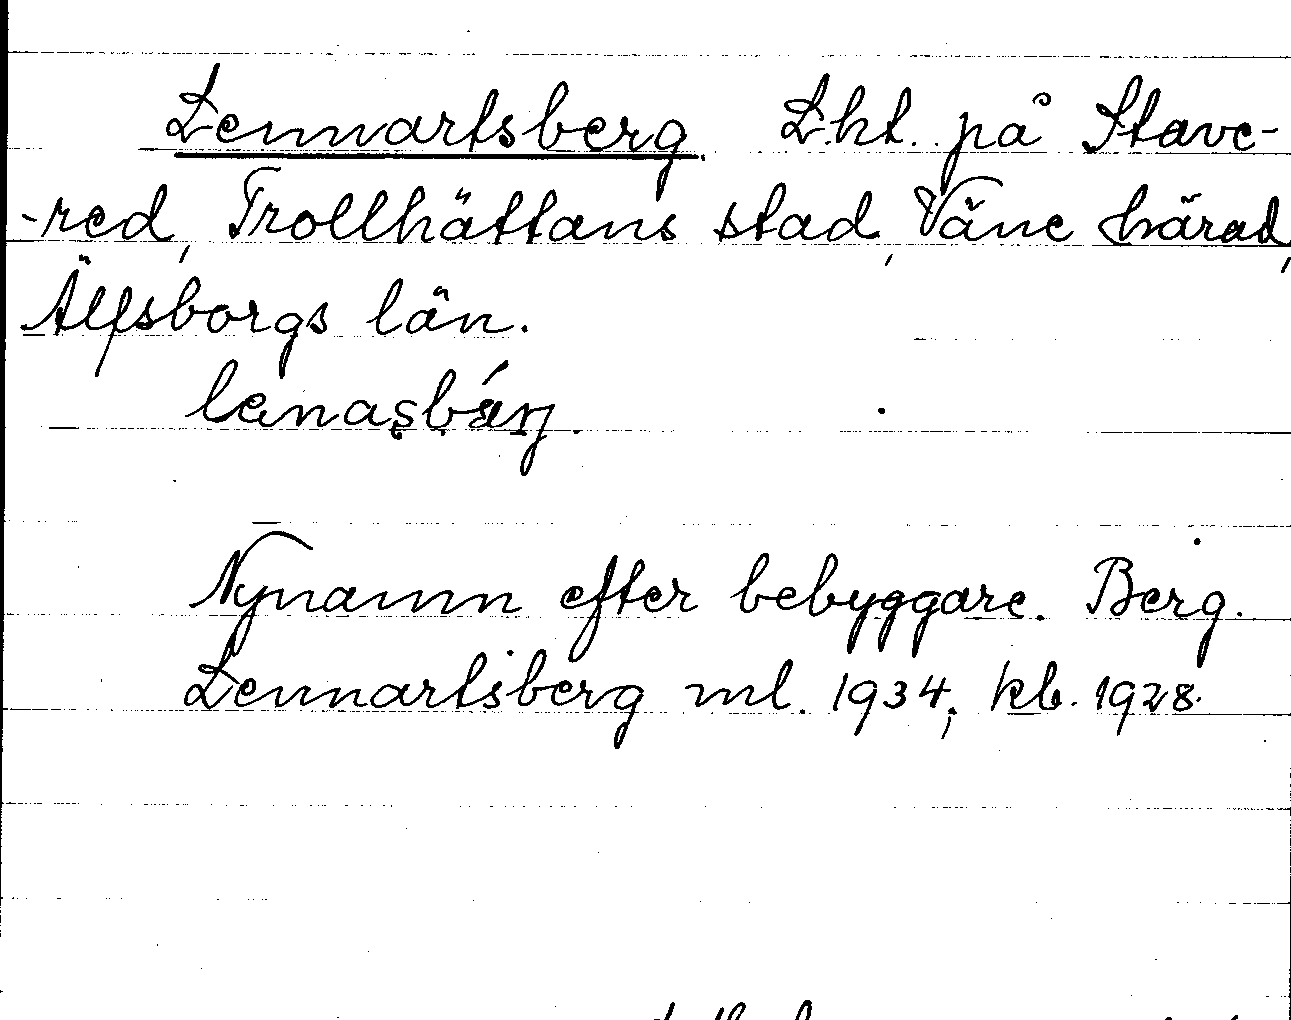 Lennartsberg. Lht. på Stave-
-red, Trollhättans stad, Väne härad,
Älfsborgs län.
Nynamn efter bebyggare. Berg.
Lennartsberg ml. 1934; kb. 1928.